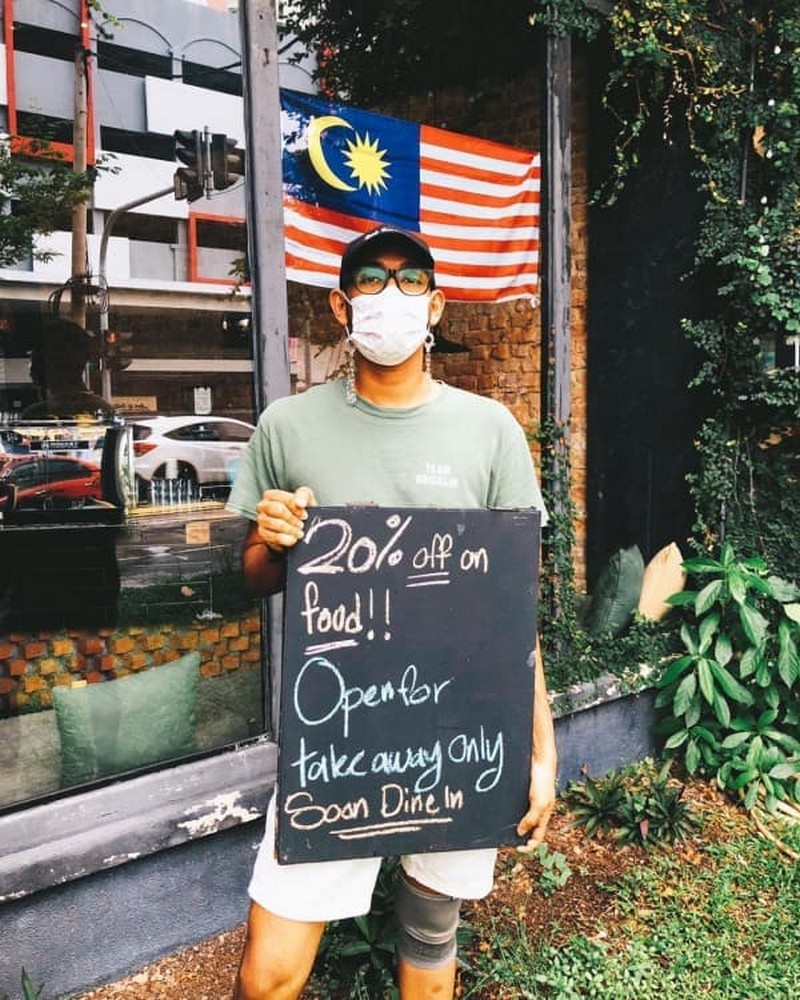 TEAM
20% off on
food!!
Open for
take away only
Soon Dine In